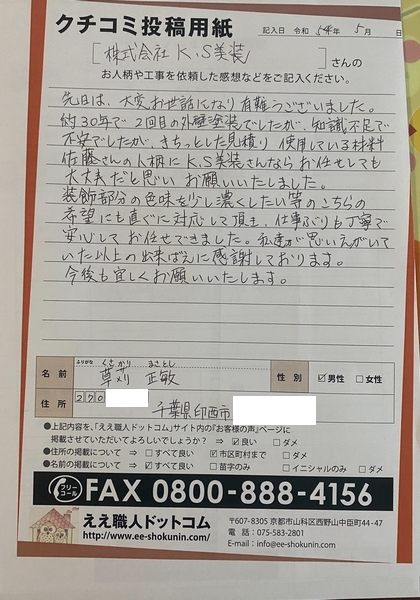 クチコミ投稿用紙
記入日 令和 5年 5月 日
[株式会社 K.S美装 ]さんの
お人柄や工事を依頼した感想などをご記入ください。
先日は、大変お世話になり有難うございました。
約30年で2回目の外壁塗装でしたが、知識不足で
不安でしたが、きちっとした見積り 使用している材料
佐藤さんの人柄に K.S美装さんなら お任せしても
大丈夫だと思い お願いいたしました。
装飾部分の色味を少し濃くしたい等のこちらの
希望にも直ぐに対応して頂き、仕事ぶりも丁寧で
安心して お任せできました。私達が思いえがいて
いた以上の出来ばえに感謝しております。
今後も宜しくお願いいたします。
ふりがな くさかり まさとし
名前 草刈 正敏 性別 ☑男性 □女性
住所 270
千葉県印西市
●上記内容を、「ええ職人ドットコム」サイト内の「お客様の声」ページに
掲載させていただいてよろしいでしょうか? ⇒ ☑良い □ダメ
●住所の掲載について ⇒ □すべて良い ☑市区町村まで □ダメ
●名前の掲載について ⇒ ☑すべて良い □苗字のみ □イニシャルのみ □ダメ
フリーコール FAX 0800-888-4156
ええ職人ドットコム
http://www.ee-shokunin.com/
〒607-8305 京都市山科区西野山中臣町44-47
電話:075-583-2801
E-mail:info@ee-shokunin.com